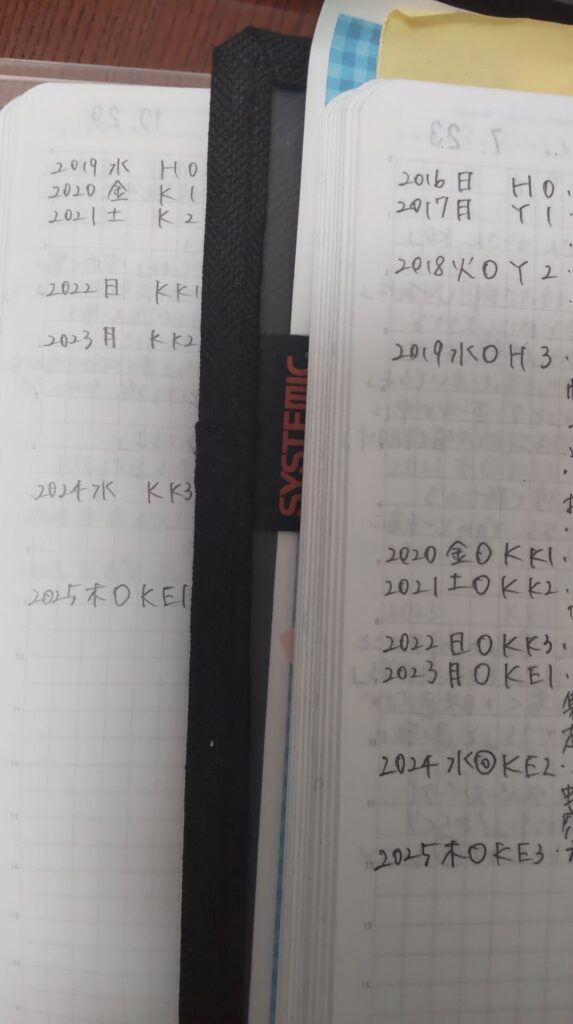 2019 水 H0
2020 金 K1
2021 土 K2
2022 日 KK1
2023 月 KK2
2024 水 KK3
2025 木〇 KE1
SYSTEMIC
2016 日 H0.
2017 月 Y1.
2018 火〇 Y2.
2019 水〇 H3.
2020 金〇 KK1.
2021 土〇 KK2.
2022 日〇 KK3.
2023 月〇 KE1.
2024 水◎ KE2.
2025 木〇 KE3.